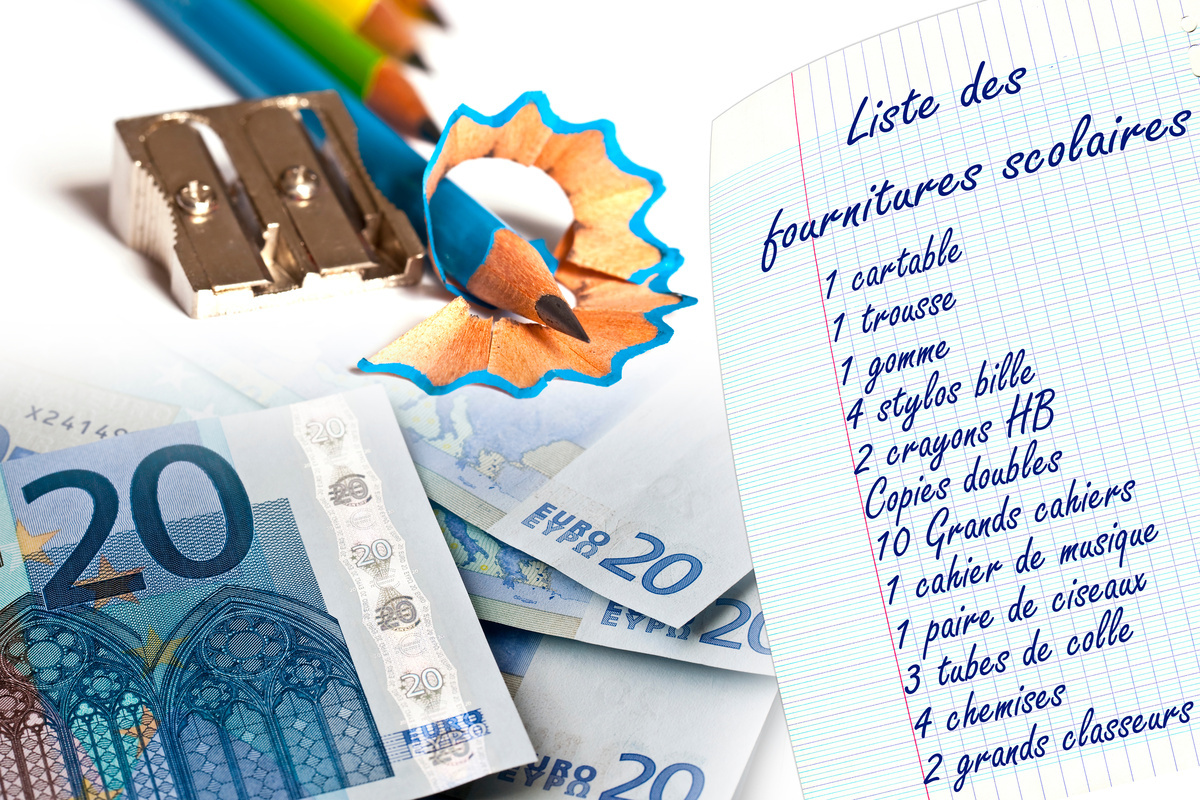 Liste des
fournitures scolaires
1 cartable
1 trousse
1 gomme
4 stylos bille
2 crayons HB
Copies doubles
10 Grands cahiers
1 cahier de musique
1 paire de ciseaux
3 tubes de colle
4 chemises
2 grands classeurs
20
20
20
20
20
20
EURO
EURO
ΕΥΡΩ
20
EURO
ΕΥΡΩ
20
EURO
ΕΥΡΩ
20